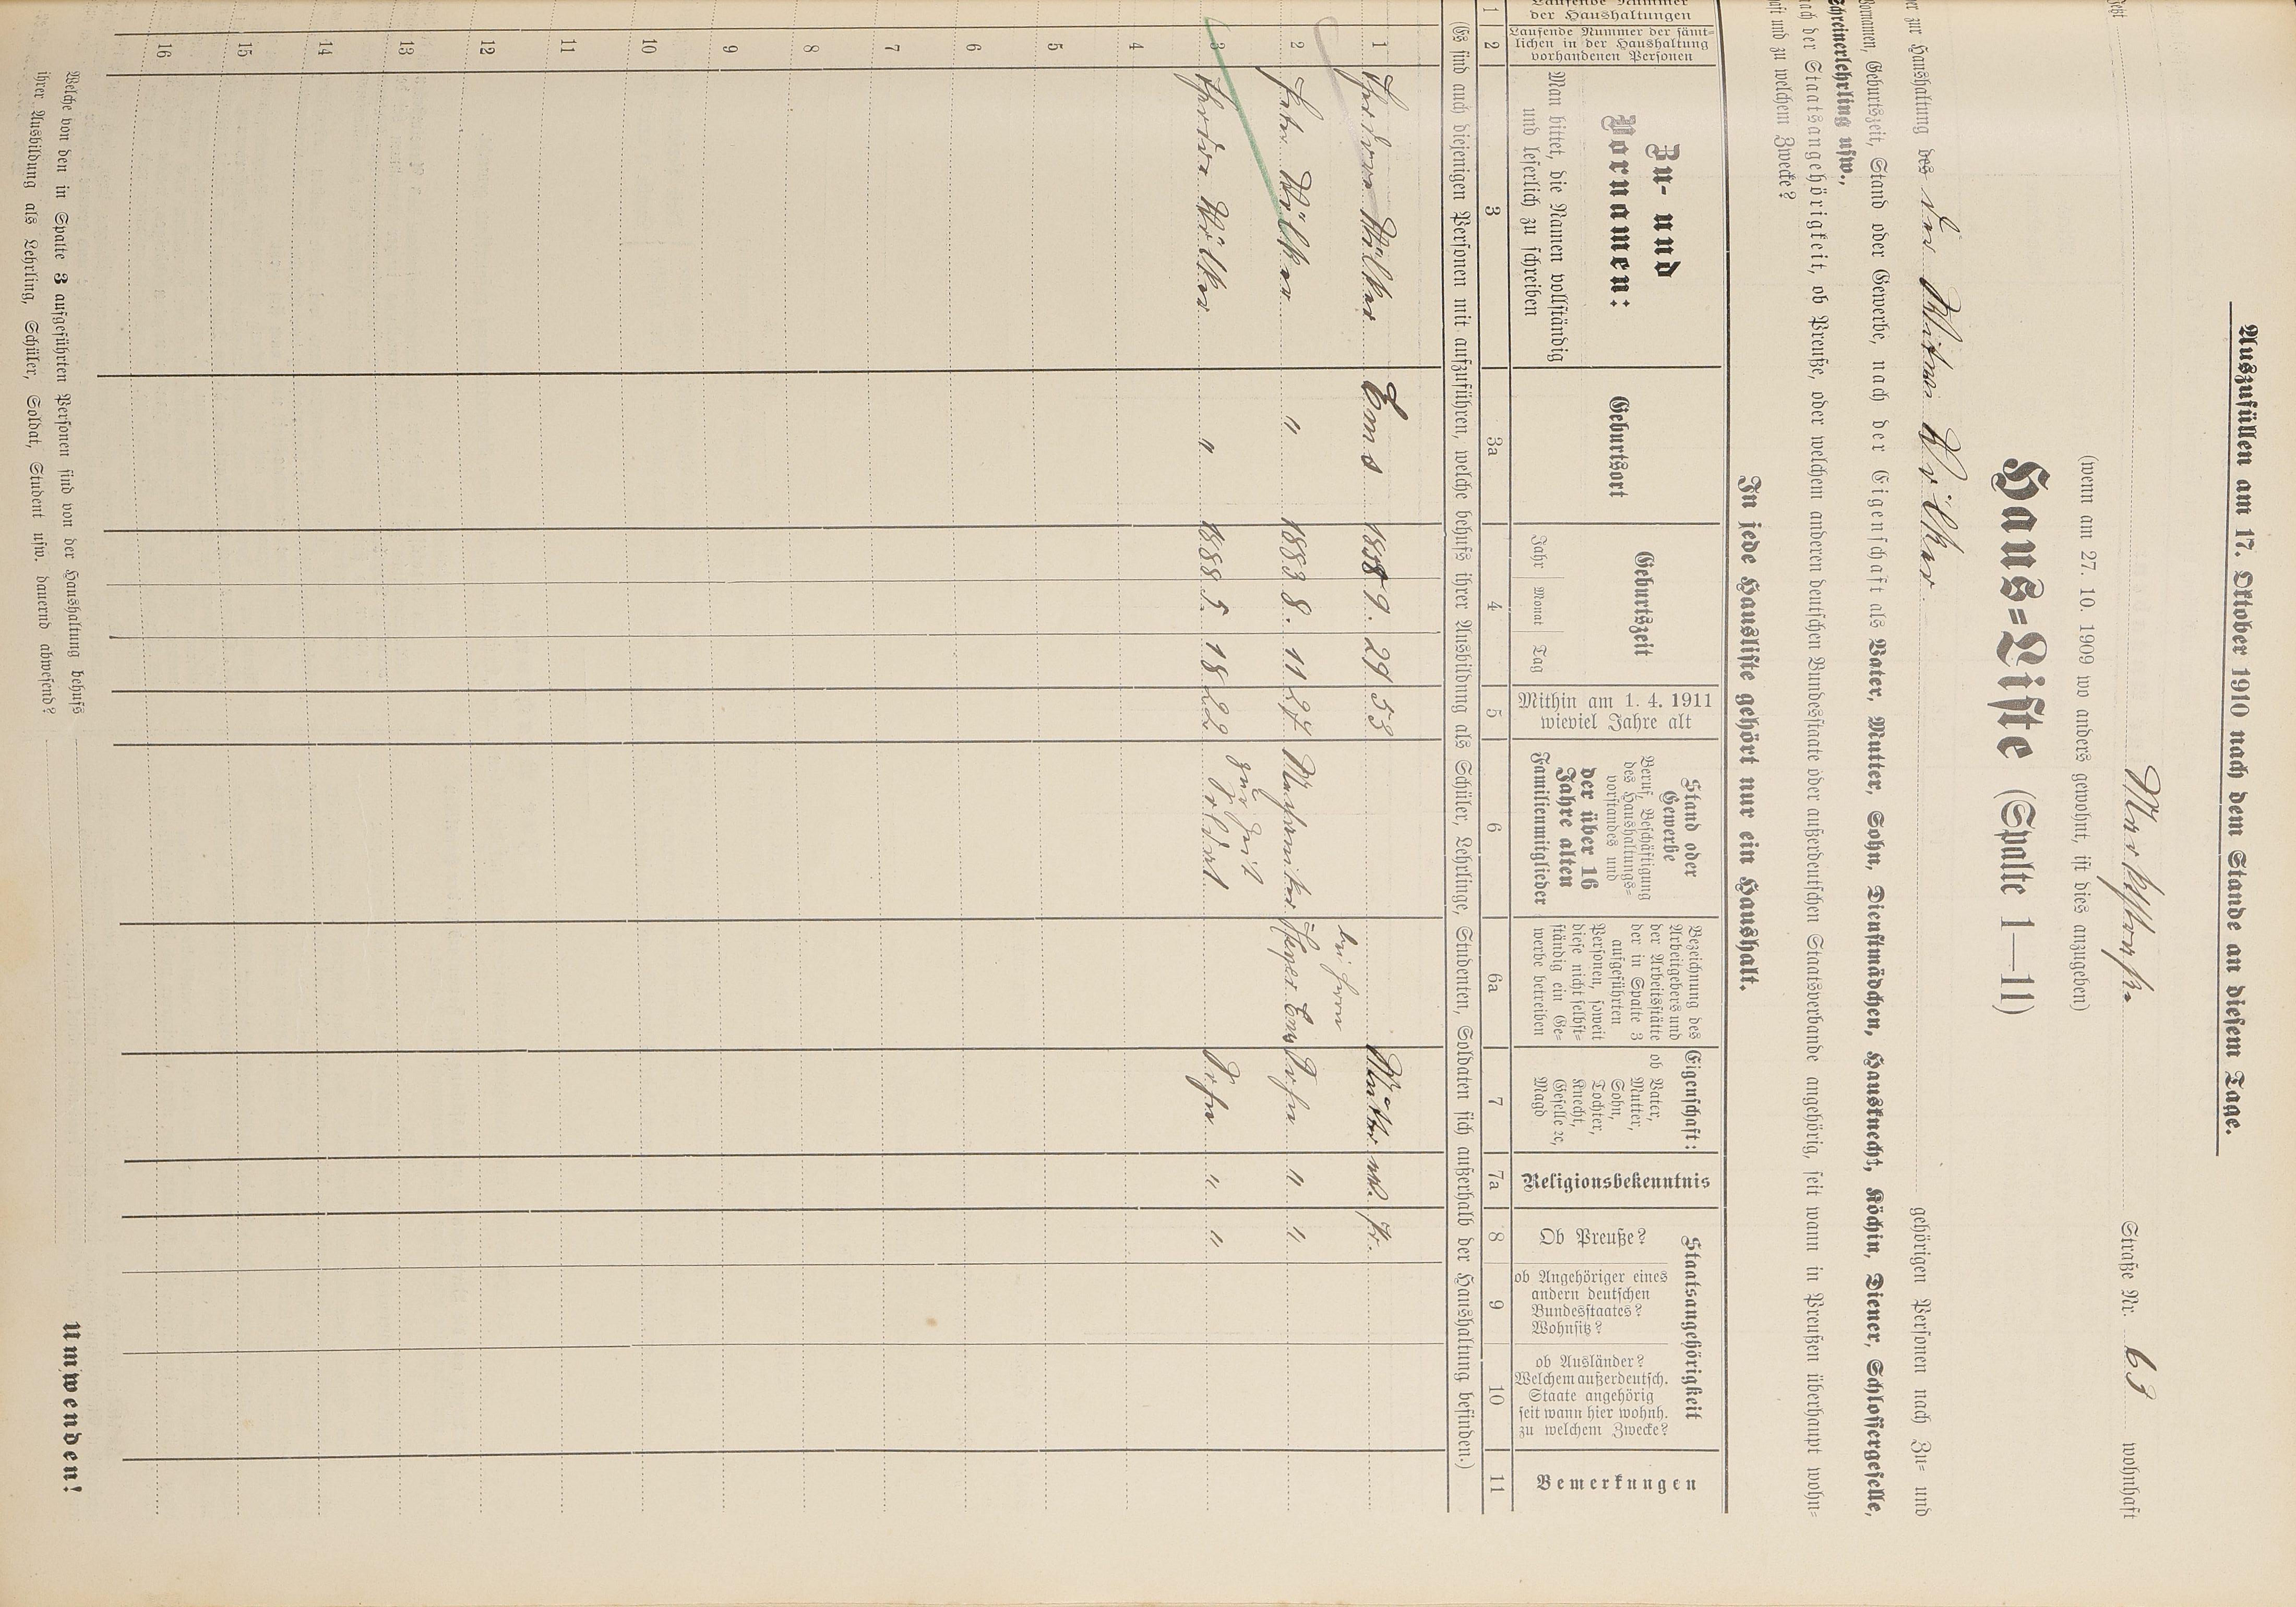 Auszufüllen am 17. Oktober 1910 nach dem Stande an diesem Tage.
Jetzt Marktstraße Straße Nr. 63 wohnhaft
(wenn am 27. 10. 1909 wo anders gewohnt, ist dies anzugeben)
Haus=Liste (Spalte 1—11)
der zur Haushaltung des der Witwe gehörigen Personen nach Zu- und
Vornamen, Geburtszeit, Stand oder Gewerbe, nach der Eigenschaft als Vater, Mutter, Sohn, Dienstmädchen, Hausknecht, Köchin, Diener, Schlossergeselle,
Schreinerlehrling usw.,
nach der Staatsangehörigkeit, ob Preuße, oder welchem anderen deutschen Bundesstaate oder außerdeutschen Staatsverbande angehörig, seit wann in Preußen überhaupt wohn=
haft und zu welchem Zwecke?
In jede Hausliste gehört nur ein Haushalt.
Laufende Nummer
der Haushaltungen
Laufende Nummer der sämt=
lichen in der Haushaltung
vorhandenen Personen
Zu- und
Vornamen:
Man bittet, die Namen vollständig
und leserlich zu schreiben
Geburtsort
Geburtszeit
Jahr Monat Tag
Mithin am 1. 4. 1911
wieviel Jahre alt
Stand oder
Gewerbe
Beruf, Beschäftigung
des Haushaltungs=
vorstandes und
der über 16
Jahre alten
Familienmitglieder
Bezeichnung des
Arbeitgebers und
der Arbeitsstätte
der in Spalte 3
aufgeführten
Personen, soweit
diese nicht selbst=
ständig ein Ge=
werbe betreiben
Eigenschaft:
ob Vater,
Mutter,
Sohn,
Tochter,
Knecht,
Geselle ꝛc,
Magd
Religionsbekenntnis
Staatsangehörigkeit
Ob Preuße?
ob Angehöriger eines
andern deutschen
Bundesstaates?
Wohnsitz?
ob Ausländer?
Welchem außerdeutsch.
Staate angehörig
seit wann hier wohnh.
zu welchem Zwecke?
Bemerkungen
1 2 3 3a 4 5 6 6a 7 7a 8 9 10 11
(Es sind auch diejenigen Personen mit aufzuführen, welche behufs ihrer Ausbildung als Schüler, Lehrlinge, Studenten, Soldaten sich außerhalb der Haushaltung befinden.)
1 Ems 1858 9. 29 53 Mutter Pr.
bei Herrn
2 Peter " 1883 8. 11 27 Mechaniker Ems Sohn " "
zur Zeit
3 " 1888 5. 18 22 Soldat Sohn " "
4
5
6
7
8
9
10
11
12
13
14
15
16
Welche von den in Spalte 3 aufgeführten Personen sind von der Haushaltung behufs
ihrer Ausbildung als Lehrling, Schüler, Soldat, Student usw. dauernd abwesend?
Umwenden!